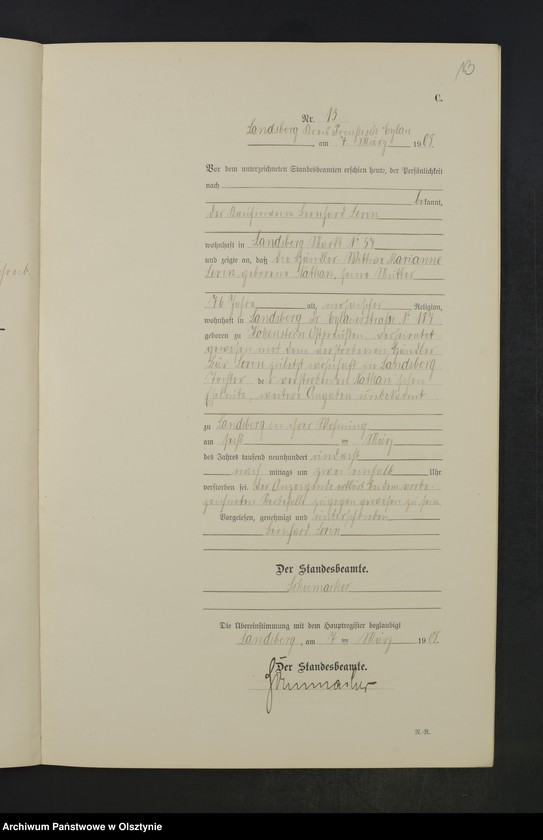 13
C.
Nr. 13
Landsberg Kreis Preußisch Eylau
, am 7 März 1908
Vor dem unterzeichneten Standesbeamten erschien heute, der Persönlichkeit
nach
bekannt,
der Kaufmann Bernhard Levin
wohnhaft in Landsberg Markt № 54
und zeigte an, daß die Händler-Wittwe Marianne
Levin geborene Nathan, seine Mutter
76 Jahre alt, mosaischer Religion,
wohnhaft in Landsberg Pr Eylauerstraße № 187
geboren zu Hohenstein Ostpreußen, verheiratet
gewesen mit dem verstorbenen Händler
Levin zuletzt wohnhaft in Landsberg
Tochter de r verstorbenen Nathan schen
Eheleute, weitere Angaben unbekannt
zu Landsberg in ihrer Wohnung
am sechs ten März
des Jahres tausend neunhundert und acht
nach mittags um zwei einhalb Uhr
verstorben sei. Der Anzeigende erklärt bei dem vorbe-
zeichneten Sterbefalle zugegen gewesen zu sein
Vorgelesen, genehmigt und unterschrieben
Bernhard Levin
Der Standesbeamte.
Schumacher
Die Übereinstimmung mit dem Hauptregister beglaubigt
Landsberg, am 7 ten März 1908.
Der Standesbeamte.
Schumacher
R.-R.
Archiwum Państwowe w Olsztynie